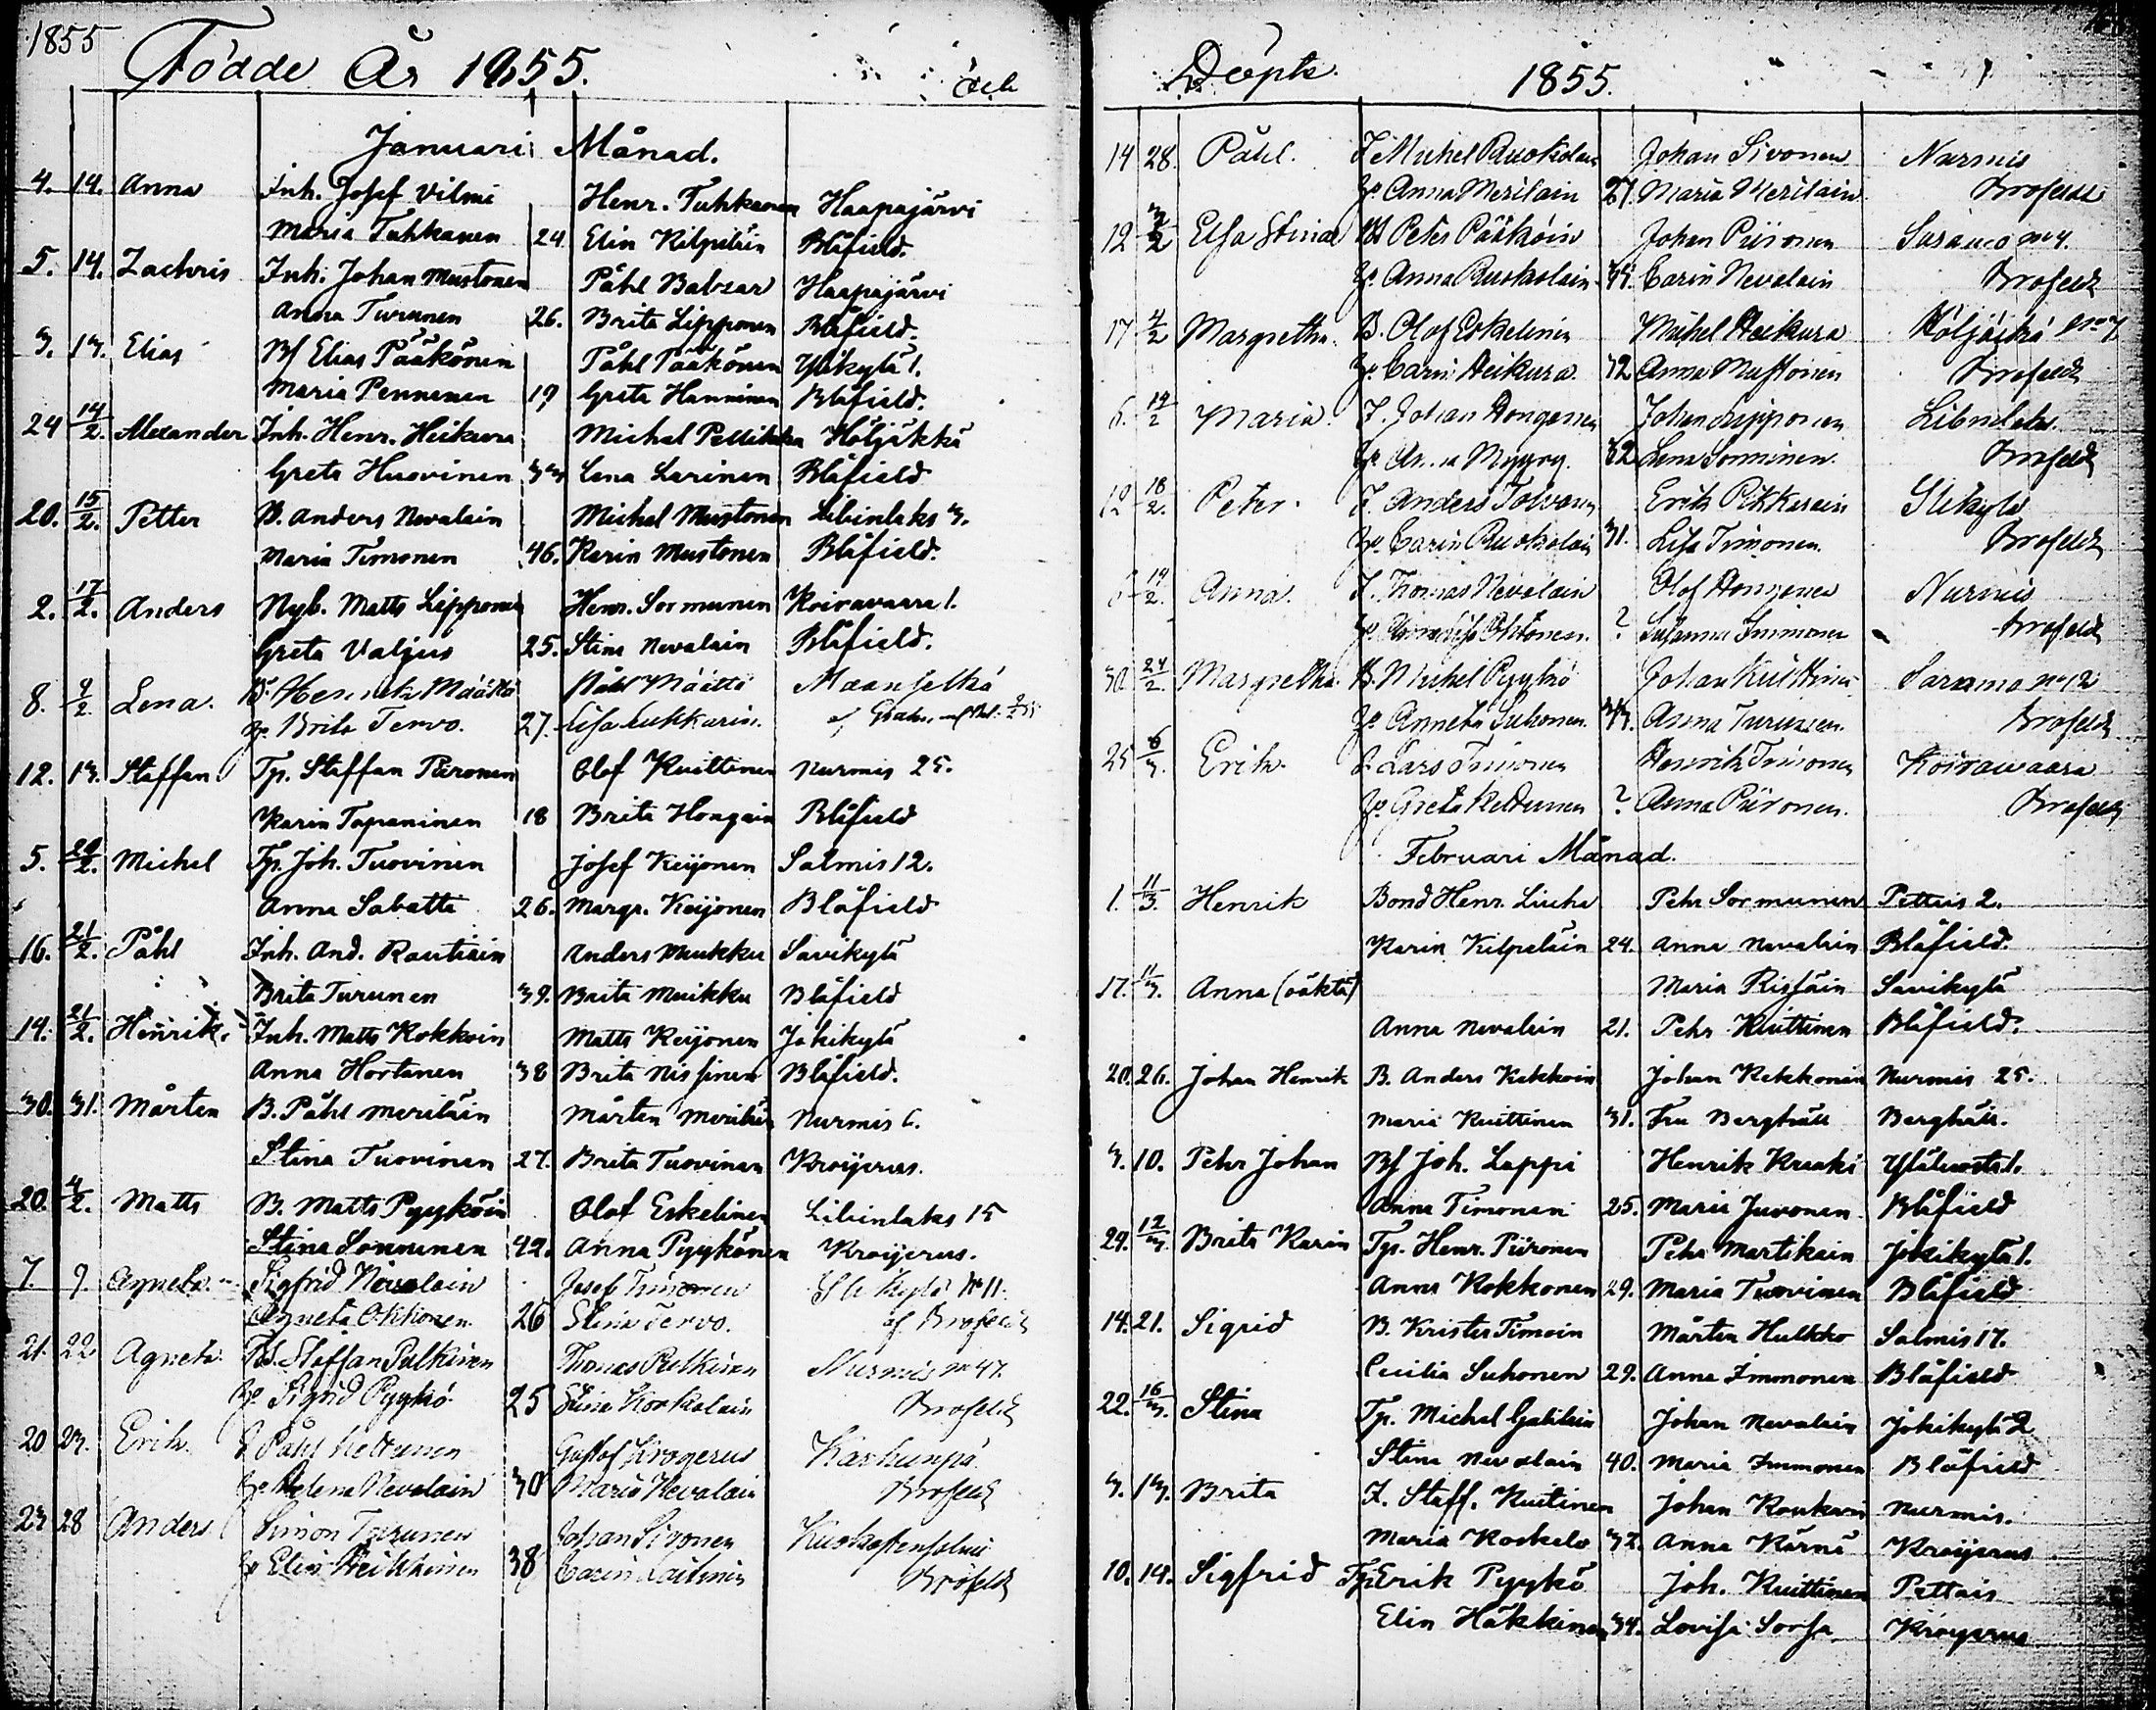 1855
Födde År 1855.
och
Januari Månad.
4. 14. Anna Inh. Josef Vilmi Henr. Tuhkanen Haapajärvi
Maria Tuhkanen 24 Elin Kilpeläin Blåfield.
5. 14. Zachris Inh. Johan Mustonen Påhl Balzar Haapajärvi
Anna Turunen 26. Brita Lipponen Blåfield.
3. 13. Elias Bf Elias Pääkönin Påhl Pääkönen Ylikylä 1.
Maria Pennanen 19 Greta Hanninen Blåfield.
24 14/2. Alexander Inh. Henr. Heikura Michel Pellikka Höljäkkä
Greta Huovinen 33 Lena Larinen Blåfield
20. 15/2. Petter B. Anders Nevalain Michel Mustonen Libinlaks 3.
Maria Timonen 46. Karin Mustonen Blåfield.
2. 17/2. Anders Nyb. Matts Lipponen Henr. Sormunen Koiravaara 1.
Greta Valjus 25. Stina Nevalain Blåfield.
8. 4/2 Lena. B. Henrik Määttä Påhl Määttä Maanselkä
h. Brita Tervo. 27. Lisa Lukkarin.
12. 13. Staffan Tp. Staffan Piironen Olof Kuittinen Nurmis 25.
Karin Tapaninen 18 Brita Hongain Blåfield
5. 20/2. Michel Tp. Joh. Tuovinen Josef Keijonen Salmis 12.
Anna Sabatta 26. Margr. Keijonen Blåfield
16. 21/2. Påhl Inh. And. Rautiain Anders Muikku Savikylä
Brita Turunen 39. Brita Muikku Blåfield
14. 21/2. Henrik. Inh. Matts Kokkoin Matts Keijonen Jokikylä
Anna Hortanen 38 Brita Nissinen Blåfield.
30. 31. Mårten B. Påhl Meriläin Mårten Meriläin Nurmis 6.
Stina Tuovinen 27. Brita Tuovinen Kroijerus.
20. 4/2. Matts B. Matts Pyyköin Olof Eskelinen Libinlaks 15
Stina Sonninen 42. Anna Pyykönen Kroijerus.
7. 9. Agneta. Sigfrid Nevalain Josef Timonen Ylikylä No 11.
Agneta Okkonen. 26 Stina Tervo. af Brofeldt
21. 22 Agneta. Staffan Pulkinen Thomas Pulkinen Nurmis no 47.
h. Sigrid Pyykö 25 Stina Korkalain Brofeldt
20 23. Erik. I. Påhl Keltunen Gustof Krogerus Karhunpä
h. Helena Nevalain 30 Maria Nevalain Brofeldt
23 28 Anders Simon Turunen Johan Sivonen
h. Elin Heikkinen 38 Carin Laitinen Brofeldt
Döpte. 1855.
14 28. Påhl. I. Michel Ruokolain Johan Sivonen Nurmis
h. Anna Meriläin 27. Maria Meriläin Brofeldt
12 3/2 Elsa Stina Bf Peter Pääköin Johan Piironen Saramo no 4.
h. Anna Ruokolain Carin Nevalain Brofeldt
17 4/2 Margretha. B. Olof Eskelinen Michel Heikura Höljäkkä No 7
h. Carin Heikura. 32 Anna Mustoinen Brofeldt
6. 14/2 Maria. I. Johan Hongonen Johan Lipponen Libinlaks.
h. Anna Myyry. 32 Lena Sonninen. Brofeldt
12 18/2. Peter. I. Anders Tolvanen Erik Pikkarain Ylikylä
h. Carin Ruokolain 31. Lisa Timonen. Brofeldt
6 14/2. Anna. I. Thomas Nevalain Olof Hongonen Nurmis
h. Oktonen. ? Susanna Immonen Brofeldt
30. 24/2. Margretha. B. Michel Pyykö Johan Kuittinen Saramo no 12
h. Anneta Suhonen. 33. Anna Turunen. Brofeldt
25 6/3. Erik. I. Lars Timonen Henrik Timonen Koirawaara
h. Greta Keltunen ? Anna Piironen. Brofeldt
Februari Månad.
1. 11/3. Henrik Bond Henr. Liuha Pehr Sormunen Pettais 2.
Karin Kilpeläin 24. Anna Nevalain Blåfield.
17. 11/3. Anna (oäkta) Maria Rissain Savikylä
Anna Nevalain 21. Pehr Kuittinen Blåfield.
20. 26. Johan Henrik B. Anders Kekkoin Johan Kekkonen Nurmis 25.
Maria Kuittinen 31. Fru Berghäll Berghäll.
3. 10. Pehr Johan Bf Joh. Lappi Henrik Kraaki
Anna Timonen 25. Maria Juvonen Blåfield
29. 12/3. Brita Karin Tp. Henr. Piironen Pehr Martikain Jokikylä 1.
Anna Kokkonen 29. Maria Tuovinen Blåfield
14. 21. Sigrid B. Krister Timoin Mårten Hulkko Salmis 17.
Cecilia Suhonen 29. Anna Immonen Blåfield
22. 16/3. Stina Tp. Michel Galilain Johan Nevalain Jokikylä 2
Stina Nevalain 40. Maria Immonen Blåfield
3. 13. Brita I. Staff. Kuitinen Johan Roukain Nurmis.
Maria Koskelo 32. Anna Kärnä Kroijerus
10. 14. Sigfrid Tp. Erik Pyykö Joh. Kuittinen Pettais
Elin Häkkinen 34. Lovisa Sorsa Kroijerus